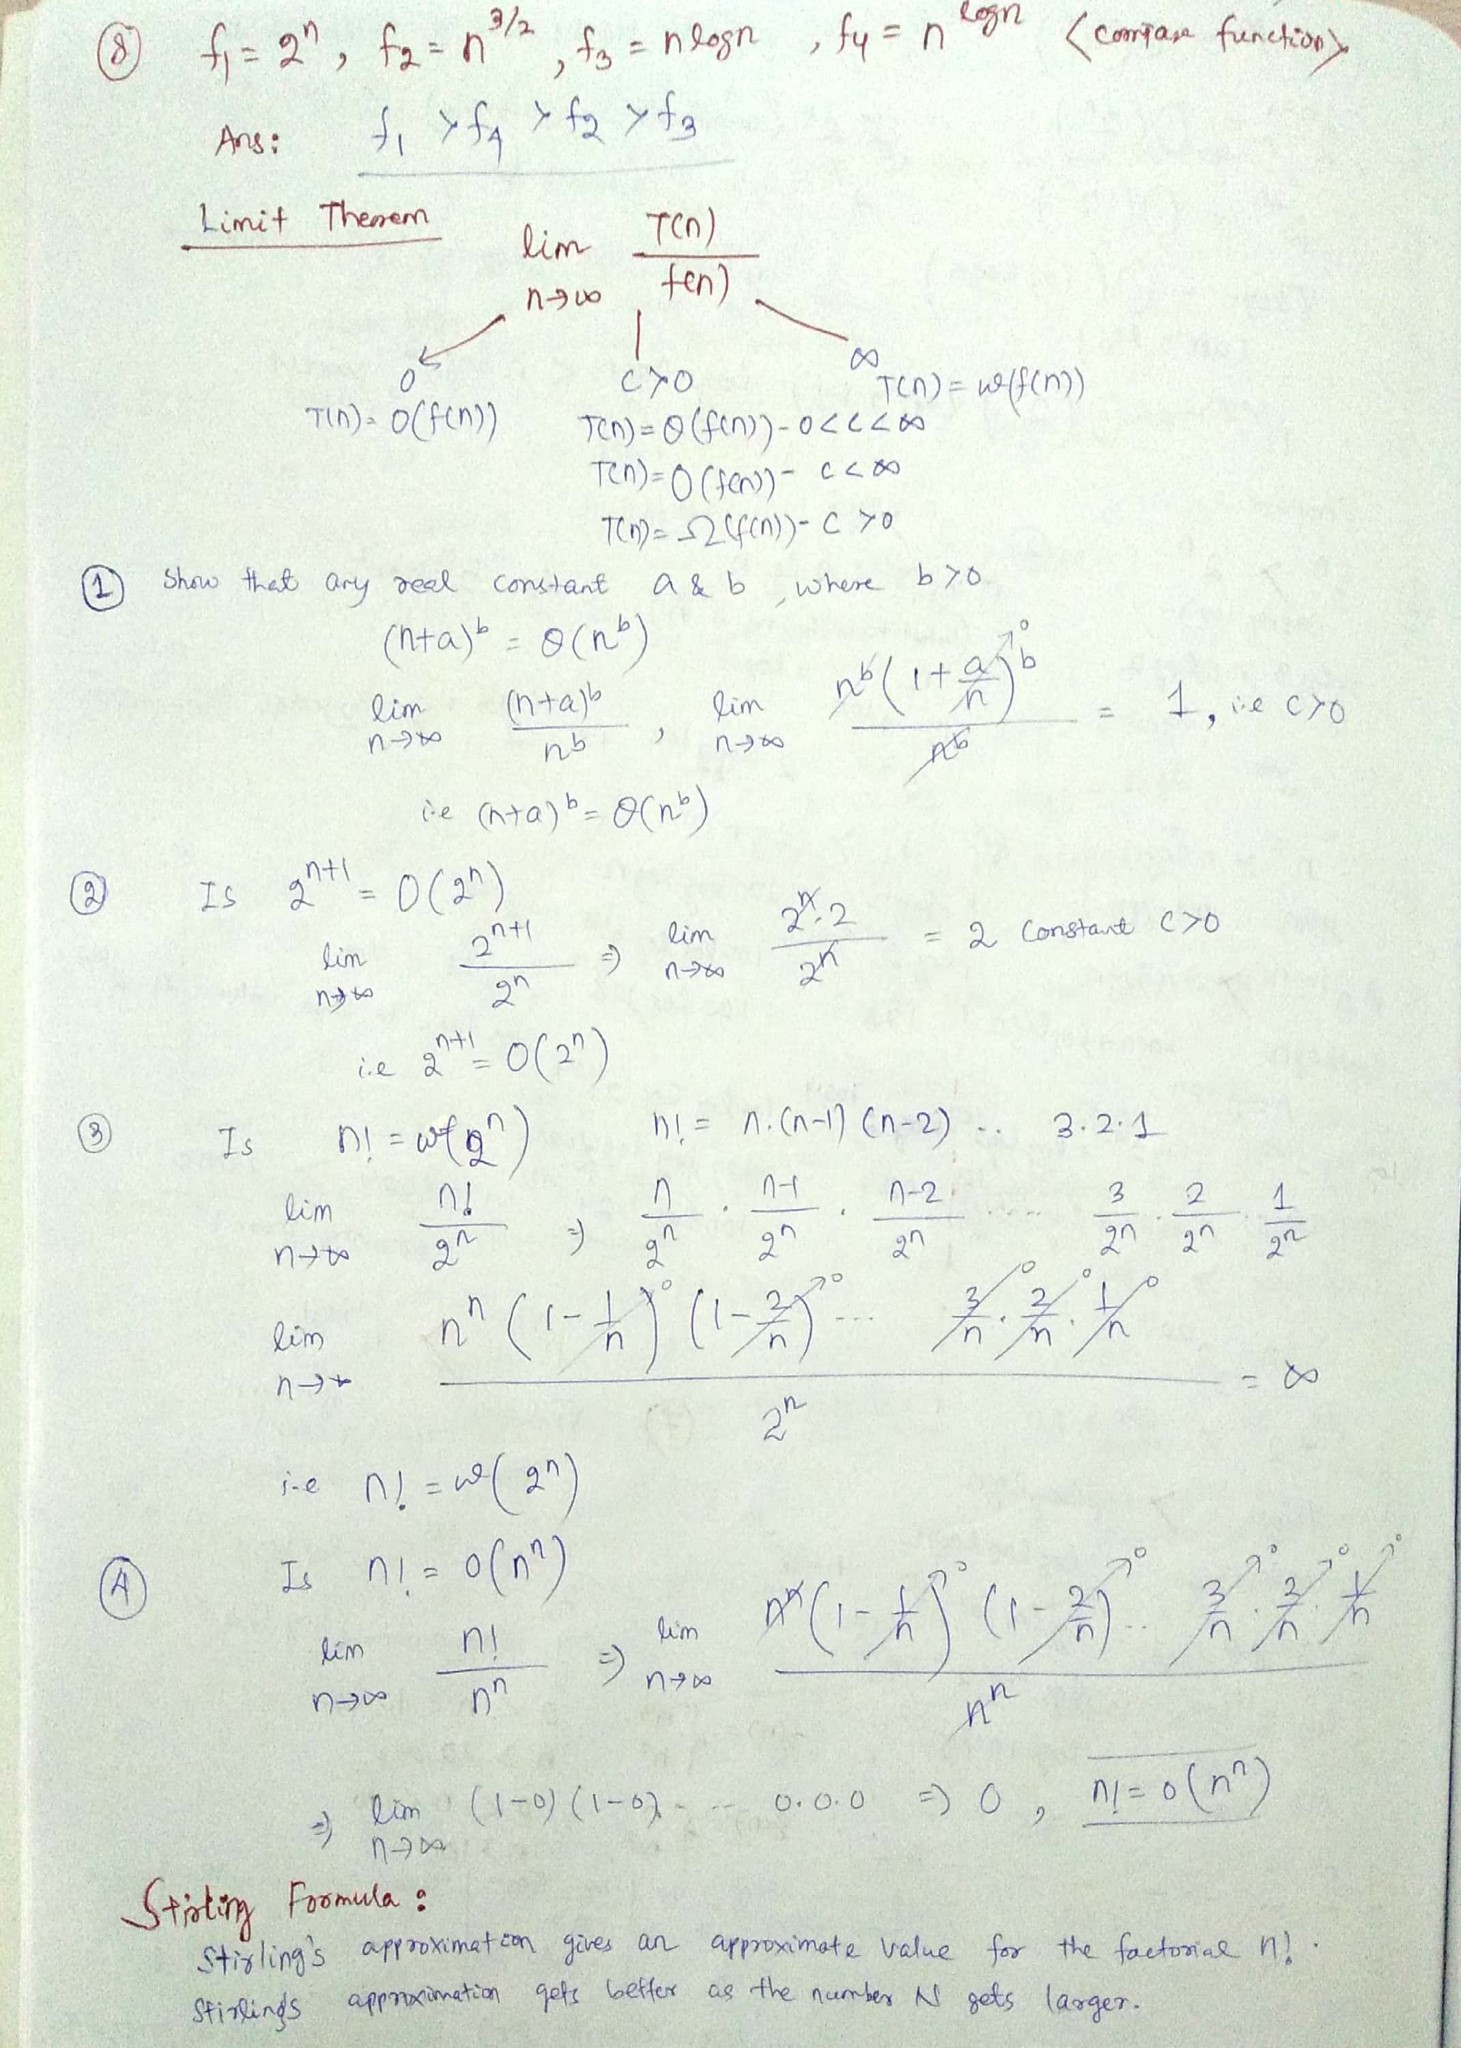 ⑧ f₁ = 2ⁿ, f₂ = n^(3/2), f₃ = n logn, f₄ = n^(logn) <compare function>
Ans: f₁ > f₄ > f₂ > f₃
Limit Theorem
lim n→∞ T(n)/f(n)
0 C>0 ∞
T(n) = ω(f(n))
T(n) = o(f(n)) T(n) = θ(f(n)) - 0<c<∞
T(n) = O(f(n)) - c<∞
T(n) = Ω(f(n)) - c >0
① Show that any real constant a & b, where b>0
(n+a)^b = θ(n^b)
lim n→∞ (n+a)^b / n^b , lim n→∞ n^b (1 + a/n)^b / n^b = 1, i.e c>0
i.e (n+a)^b = θ(n^b)
② Is 2^(n+1) = O(2ⁿ)
lim n→∞ 2^(n+1) / 2ⁿ ⇒ lim n→∞ 2ⁿ.2 / 2ⁿ = 2 constant c>0
i.e 2^(n+1) = O(2ⁿ)
③ Is n! = ω(2ⁿ) n! = n.(n-1) (n-2) .. 3.2.1
lim n→∞ n!/2ⁿ ⇒ n/2ⁿ . n-1/2ⁿ . n-2/2ⁿ ..... 3/2ⁿ . 2/2ⁿ . 1/2ⁿ
lim n→∞ nⁿ (1 - 1/n)→0 (1 - 2/n)→0 ... 3/n→0 . 2/n→0 . 1/n→0 / 2ⁿ = ∞
i.e n! = ω(2ⁿ)
④ Is n! = o(nⁿ)
lim n→∞ n!/nⁿ ⇒ lim n→∞ nⁿ (1 - 1/n)→0 (1 - 2/n)→0 .. 3/n→0 . 2/n→0 . 1/n→0 / nⁿ
⇒ lim n→∞ (1-0) (1-0) - -- 0.0.0 ⇒ 0, n! = o(nⁿ)
Stirling Formula :
Stirling's approximation gives an approximate value for the factorial n! .
Stirlings approximation gets better as the number N gets larger.